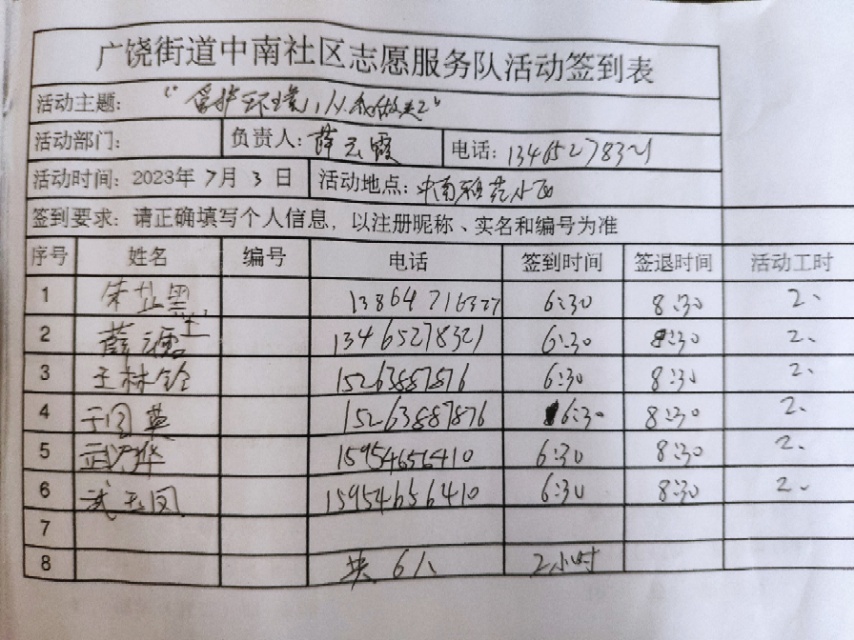 广饶街道中南社区志愿服务队活动签到表
活动主题：“保护环境，从我做起”
活动部门： 负责人：薛云霞 电话：13465278321
活动时间：2023年7月3日 活动地点：中南 小区
签到要求：请正确填写个人信息，以注册昵称、实名和编号为准
序号 姓名 编号 电话 签到时间 签退时间 活动工时
1 13864716327 6:30 8:30 2、
2 薛云霞 13465278321 6:30 8:30 2、
3 王林铃 15263887876 6:30 8:30 2、
4 于凤英 15263887876 6:30 8:30 2、
5 15954656410 6:30 8:30 2、
6 武玉凤 15954656410 6:30 8:30 2、
7
8 共6人 2小时